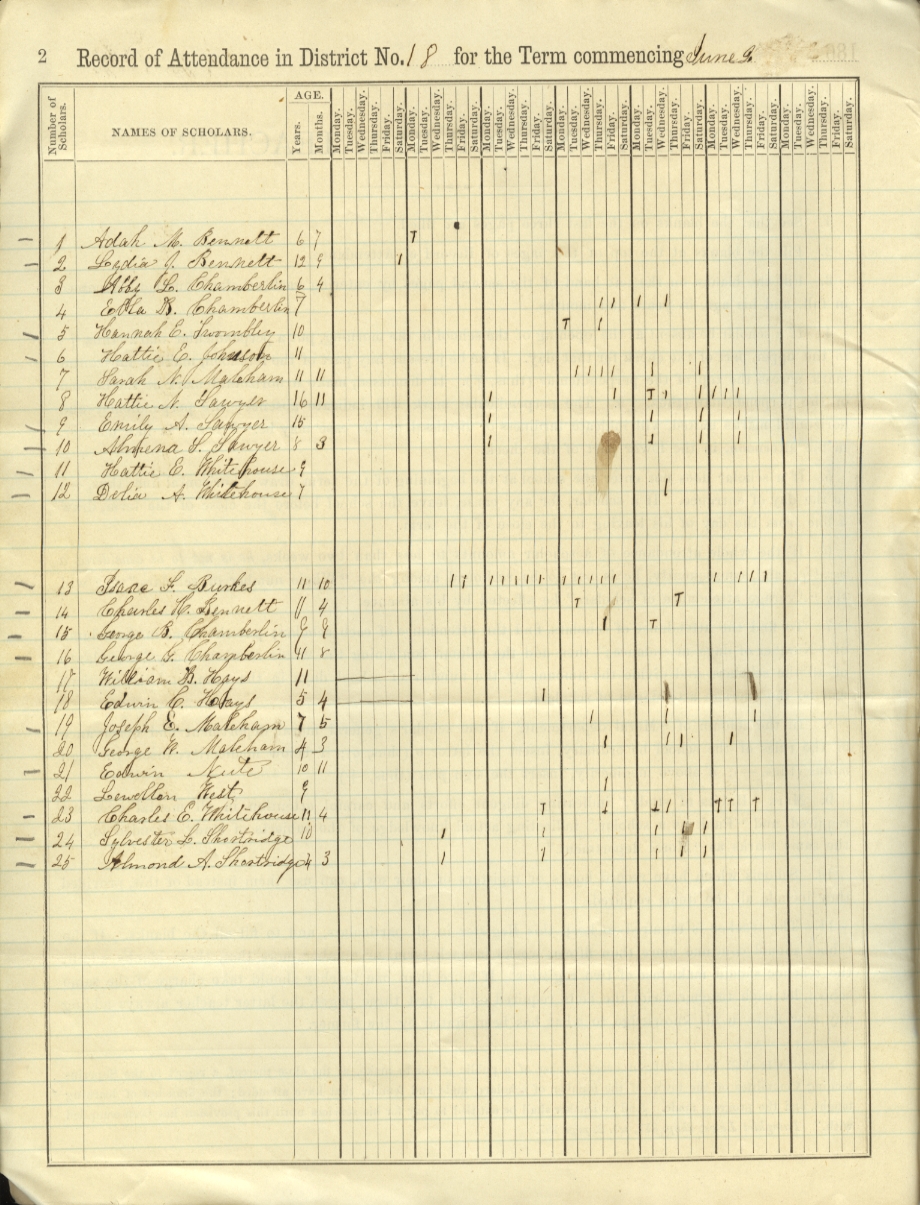 2 Record of Attendance in District No. 18 for the Term commencing June 2
Number of Scholars. NAMES OF SCHOLARS. AGE. Years. Months. Monday. Tuesday. Wednesday. Thursday. Friday. Saturday. Monday. Tuesday. Wednesday. Thursday. Friday. Saturday. Monday. Tuesday. Wednesday. Thursday. Friday. Saturday. Monday. Tuesday. Wednesday. Thursday. Friday. Saturday. Monday. Tuesday. Wednesday. Thursday. Friday. Saturday. Monday. Tuesday. Wednesday. Thursday. Friday. Saturday. Monday. Tuesday. Wednesday. Thursday. Friday. Saturday.
1 Adah M. Bennett 6 7 T
2 Lydia J. Bennett 12 9
3 Abby L. Chamberlin 6 4
4 Etta B. Chamberlin 7
5 Hannah E. Twombley 10 T
6 Hattie E. Johnson 11
7 Sarah N. Maleham 11 11
8 Hattie N. Sawyer 16 11 T
9 Emily A. Sawyer 15
10 Almena S. Sawyer 8 3
11 Hattie E. Whitehouse 9
12 Delia A. Whitehouse 7
13 Isaac F. Burkes 11 10
14 Charles H. Bennett 11 4 T T
15 George B. Chamberlin 9 8 T
16 George G. Chamberlin 11 8
17 William B. Hays 11
18 Edwin C. Hays 5 4
19 Joseph E. Maleham 7 5
20 George W. Maleham 4 3
21 Edwin Nute 10 11
22 Lewellen West 9
23 Charles E. Whitehouse 11 4 T T T T
24 Sylvester L. Shortridge 10
25 Almond A. Shortridge 4 3